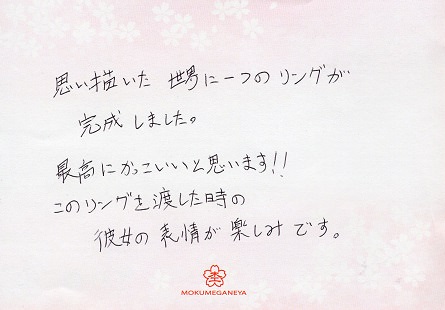 思い描いた 世界に一つの リングが
完成しました。
最高にかっこいいと思います!!
このリングを渡した時の
彼女の表情が楽しみです。
MOKUMEGANEYA